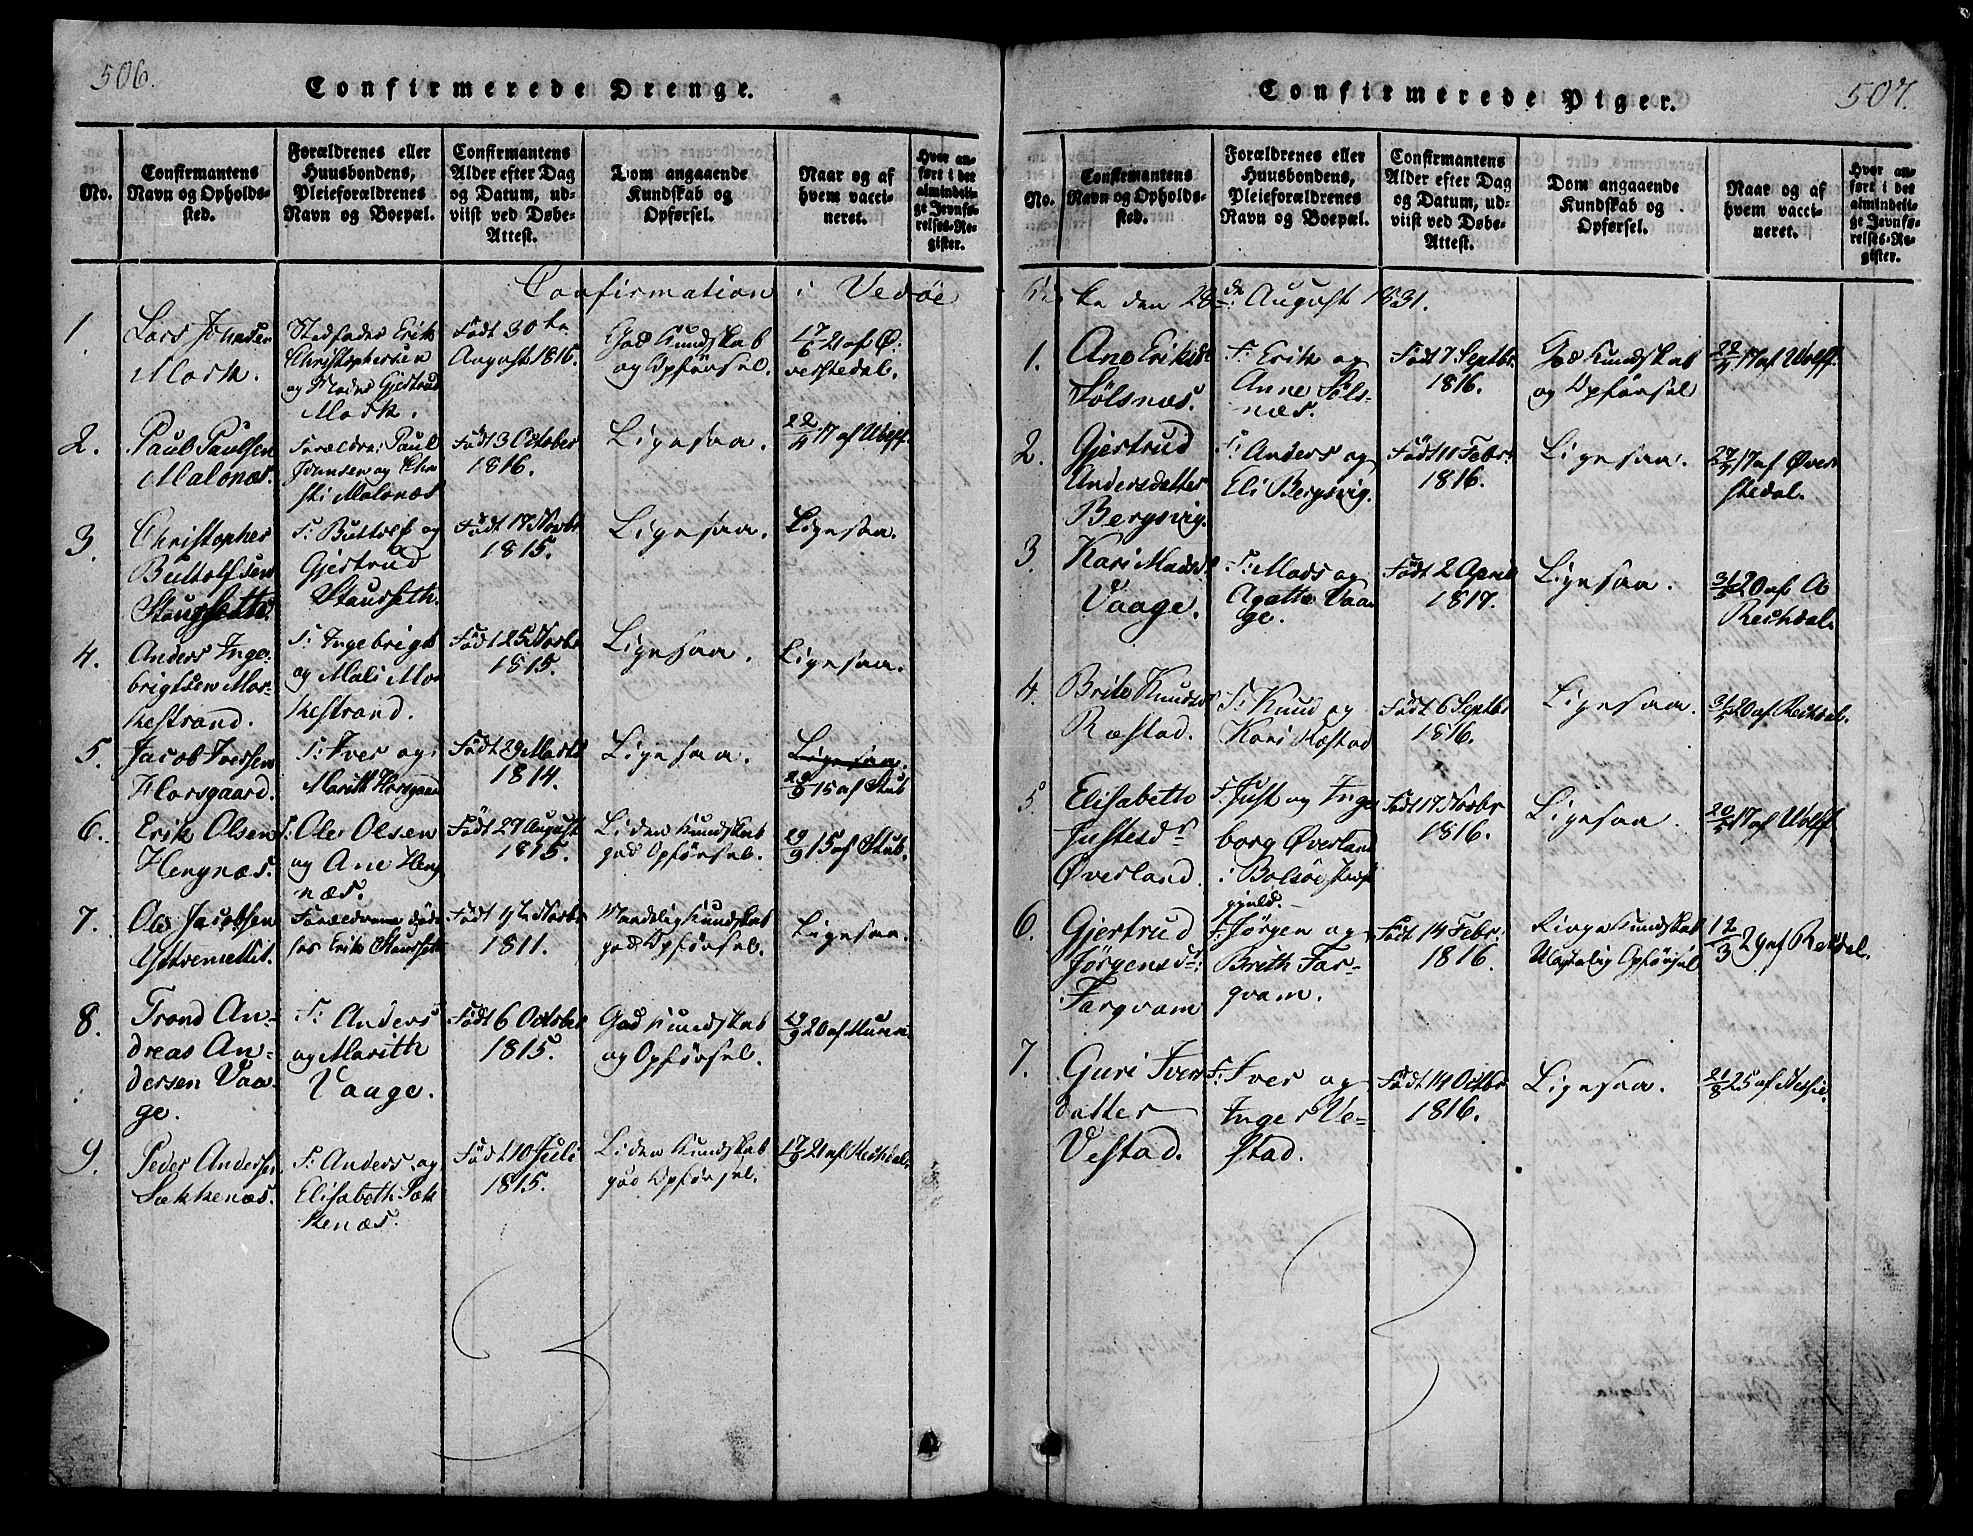 506.
Confirmerede Drenge.
No.
Confirmantens
Navn og Opholds-
sted.
Forældrenes eller
Huusbondens,
Pleieforældrenes
Navn og Boepæl.
Confirmantens
Alder efter Dag
og Datum, ud-
viist ved Døbe-
Attest.
Dom angaaende
Kundskab og
Opførsel.
Naar og af
hvem vacci-
neret.
Hvor an-
ført i det
almindeli-
ge Jevnfø-
relses-Re-
gister.
Confirmation i Vedøe
1.
Lars Jonsen
Mork.
Stedfader Erik
Christophersen
og Moder Gjertrud
Mork.
Født 30te
August 1816.
God Kundskab
og Opførsel.
17/6 21 af Ø-
verstedal.
2.
Paul Paulsen
Malonæs.
Forældre: Paul
Jonsen og
sti Malonæs
Født 3 October
1816.
Ligesaa.
22/4 17 af Wolff.
3.
Christopher
Buttolfsen
F: Buttolf og
Gjertrud
Staurseth.
Født 17 Novbr
1815.
Ligesaa.
Ligesaa.
4.
Anders Inge-
brigtsen Mor-
kestrand.
F: Ingebrigt
og Mali Mor
kestrand.
Født 25 Novbr
1815.
Ligesaa.
Ligesaa.
5.
Jacob Iversen
Horsgaard.
F: Iver og
Marith Horsgaar
Født 29 Marts
1814.
Ligesaa.
Ligesaa.
29/9 15 af Stub
6.
Erik Olsen
Hengnæs.
F: Ole Olsen
og Ane Heng
næs.
Født 27 August
1815.
Liden Kundskab
god Opførsel.
29/9 15 af Stub.
7.
Ole Jacobsen
Forældrene døde
Erik Staurseth
Født Novbr
1811.
Maadelig Kundskab
god Opførsel.
Ligesaa.
8.
Trond An-
dreas An-
dersen Vaa-
ge.
F: Anders
og Marith
Vaage.
Født 6 October
1815.
God Kundskab
og Opførsel.
20 af
9.
Peder Andersen
Sækkenæs.
F: Anders og
Elisabeth Sæk
kenæs.
Født 10 Juli
1815.
Liden Kundskab
god Opførsel.
17/9 21 af Rechdal.
Confirmerede Piger.
507.
No.
Confirmantens
Navn og Opholds-
sted.
Forældrenes eller
Huusbondens,
Pleieforældrenes
Navn og Boepæl.
Confirmantens
Alder efter Dag
og Datum, ud-
viist ved Døbe-
Attest.
Dom angaaende
Kundskab og
Opførsel.
Naar og af
hvem vacci-
neret.
Hvor an-
ført i det
almindeli-
ge Jevnfø-
relses-Re-
gister.
Kirke den 28de August 1831.
1.
Ane Eriksd
Sølsnæs.
F: Erik og
Anne Søls-
næs.
Født 7 Septbr.
1816.
God Kundskab
og Opførsel
22/4 17 af Wolff.
2.
Gjertrud
Andersdatter
Bergsvig.
F: Anders og
Eli Bergsvig.
Født 11 Febr.
1816.
Ligesaa.
17 af Øver
stedal.
3.
Kari Madsd
Vaage.
F: Mads og
Agathe Vaa
ge.
Født 2 April
1817.
Ligesaa.
20 af O
Rechdal.
4.
Brite Knudsd
Ræstad.
F: Knud og
Kari Ræstad
Født 6 Septbr
1816.
Ligesaa.
20 af Rechdal.
5
Elisabeth
Justesdr
Øverland.
F: Just og Inge
borg Øverland
i Bolsøe Præste
gjeld.
Født 17 Novbr
1816.
Ligesaa.
17 af Wolff.
6.
Gjertrud
Jørgensdr:
Fargvam
F: Jørgen og
Brith Far-
gvam.
Født 14 Febr.
1816.
Ringe Kundskab
Opførsel
12/3 29 af Rechdal.
7.
Guri Ivers
datter
Vestad.
F: Iver og
Inger Ve-
stad.
Født 14 Octbr
1816.
Ligesaa.
21/8 25 af